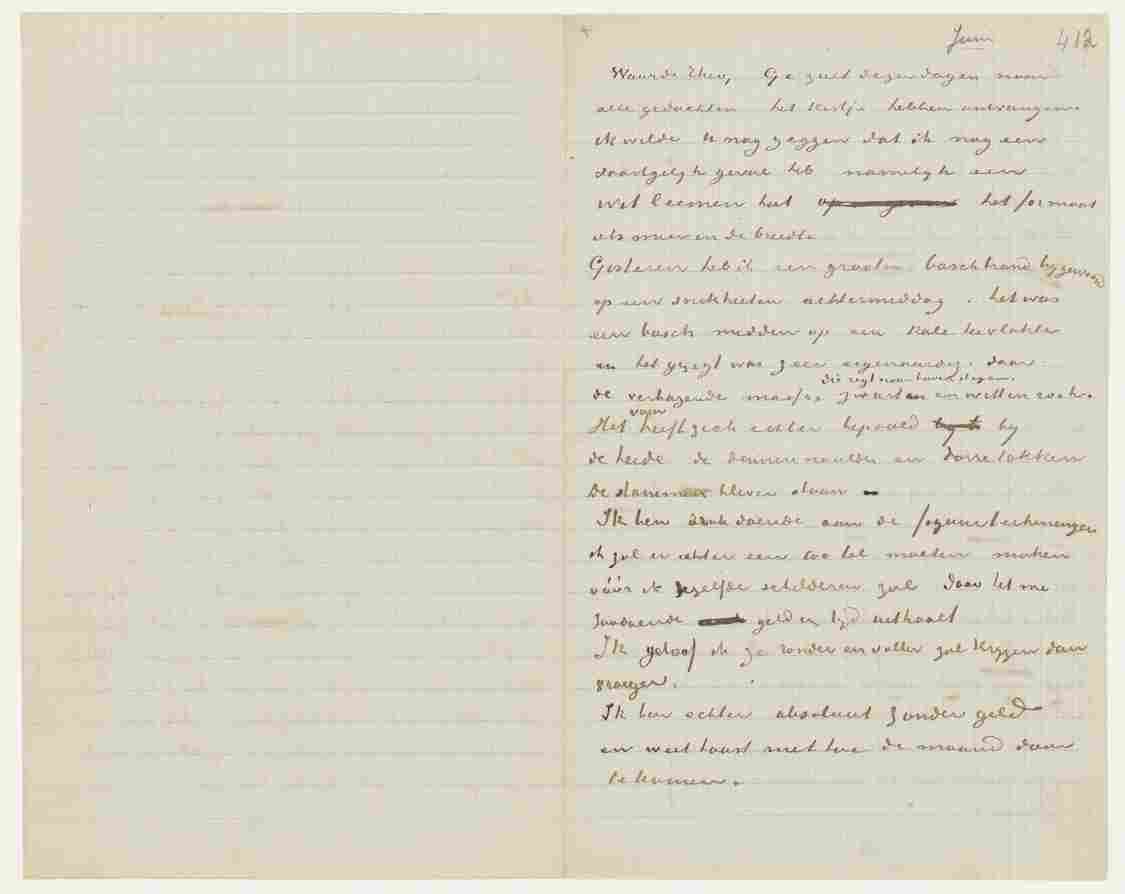 Juni 412
Waarde Theo, Ge zult dezer dagen naar
alle gedachten het kistje hebben ontvangen.
ik wilde U nog zeggen dat ik nog een
soortgelijk geval heb namelijk een
wit leemen hut het formaat
iets meer in de breedte
Gisteren heb ik een grooten boschbrand bijgewoond
op een snikheeten achtermiddag. het was
een bosch midden op een kale hei vlakte
en het gezigt was zeer eigenaardig. daar
die regt naar boven stegen.
de verbazende massas zwarten en witten rook.
vuur
Het heeft zich echter bepaald by
de heide de dennenaalden en dorre takken
De stammen bleven staan
Ik ben doende aan de figuurteekeningen
ik zal er echter een toe tal moeten maken
vóór ik dezelfde schilderen zal daar het me
zoodoende geld en tyd uithaalt
Ik geloof ik ze ronder en voller zal krygen dan
vroeger.
Ik ben echter absoluut zonder geld
en weet haast niet hoe de maand door
te komen.